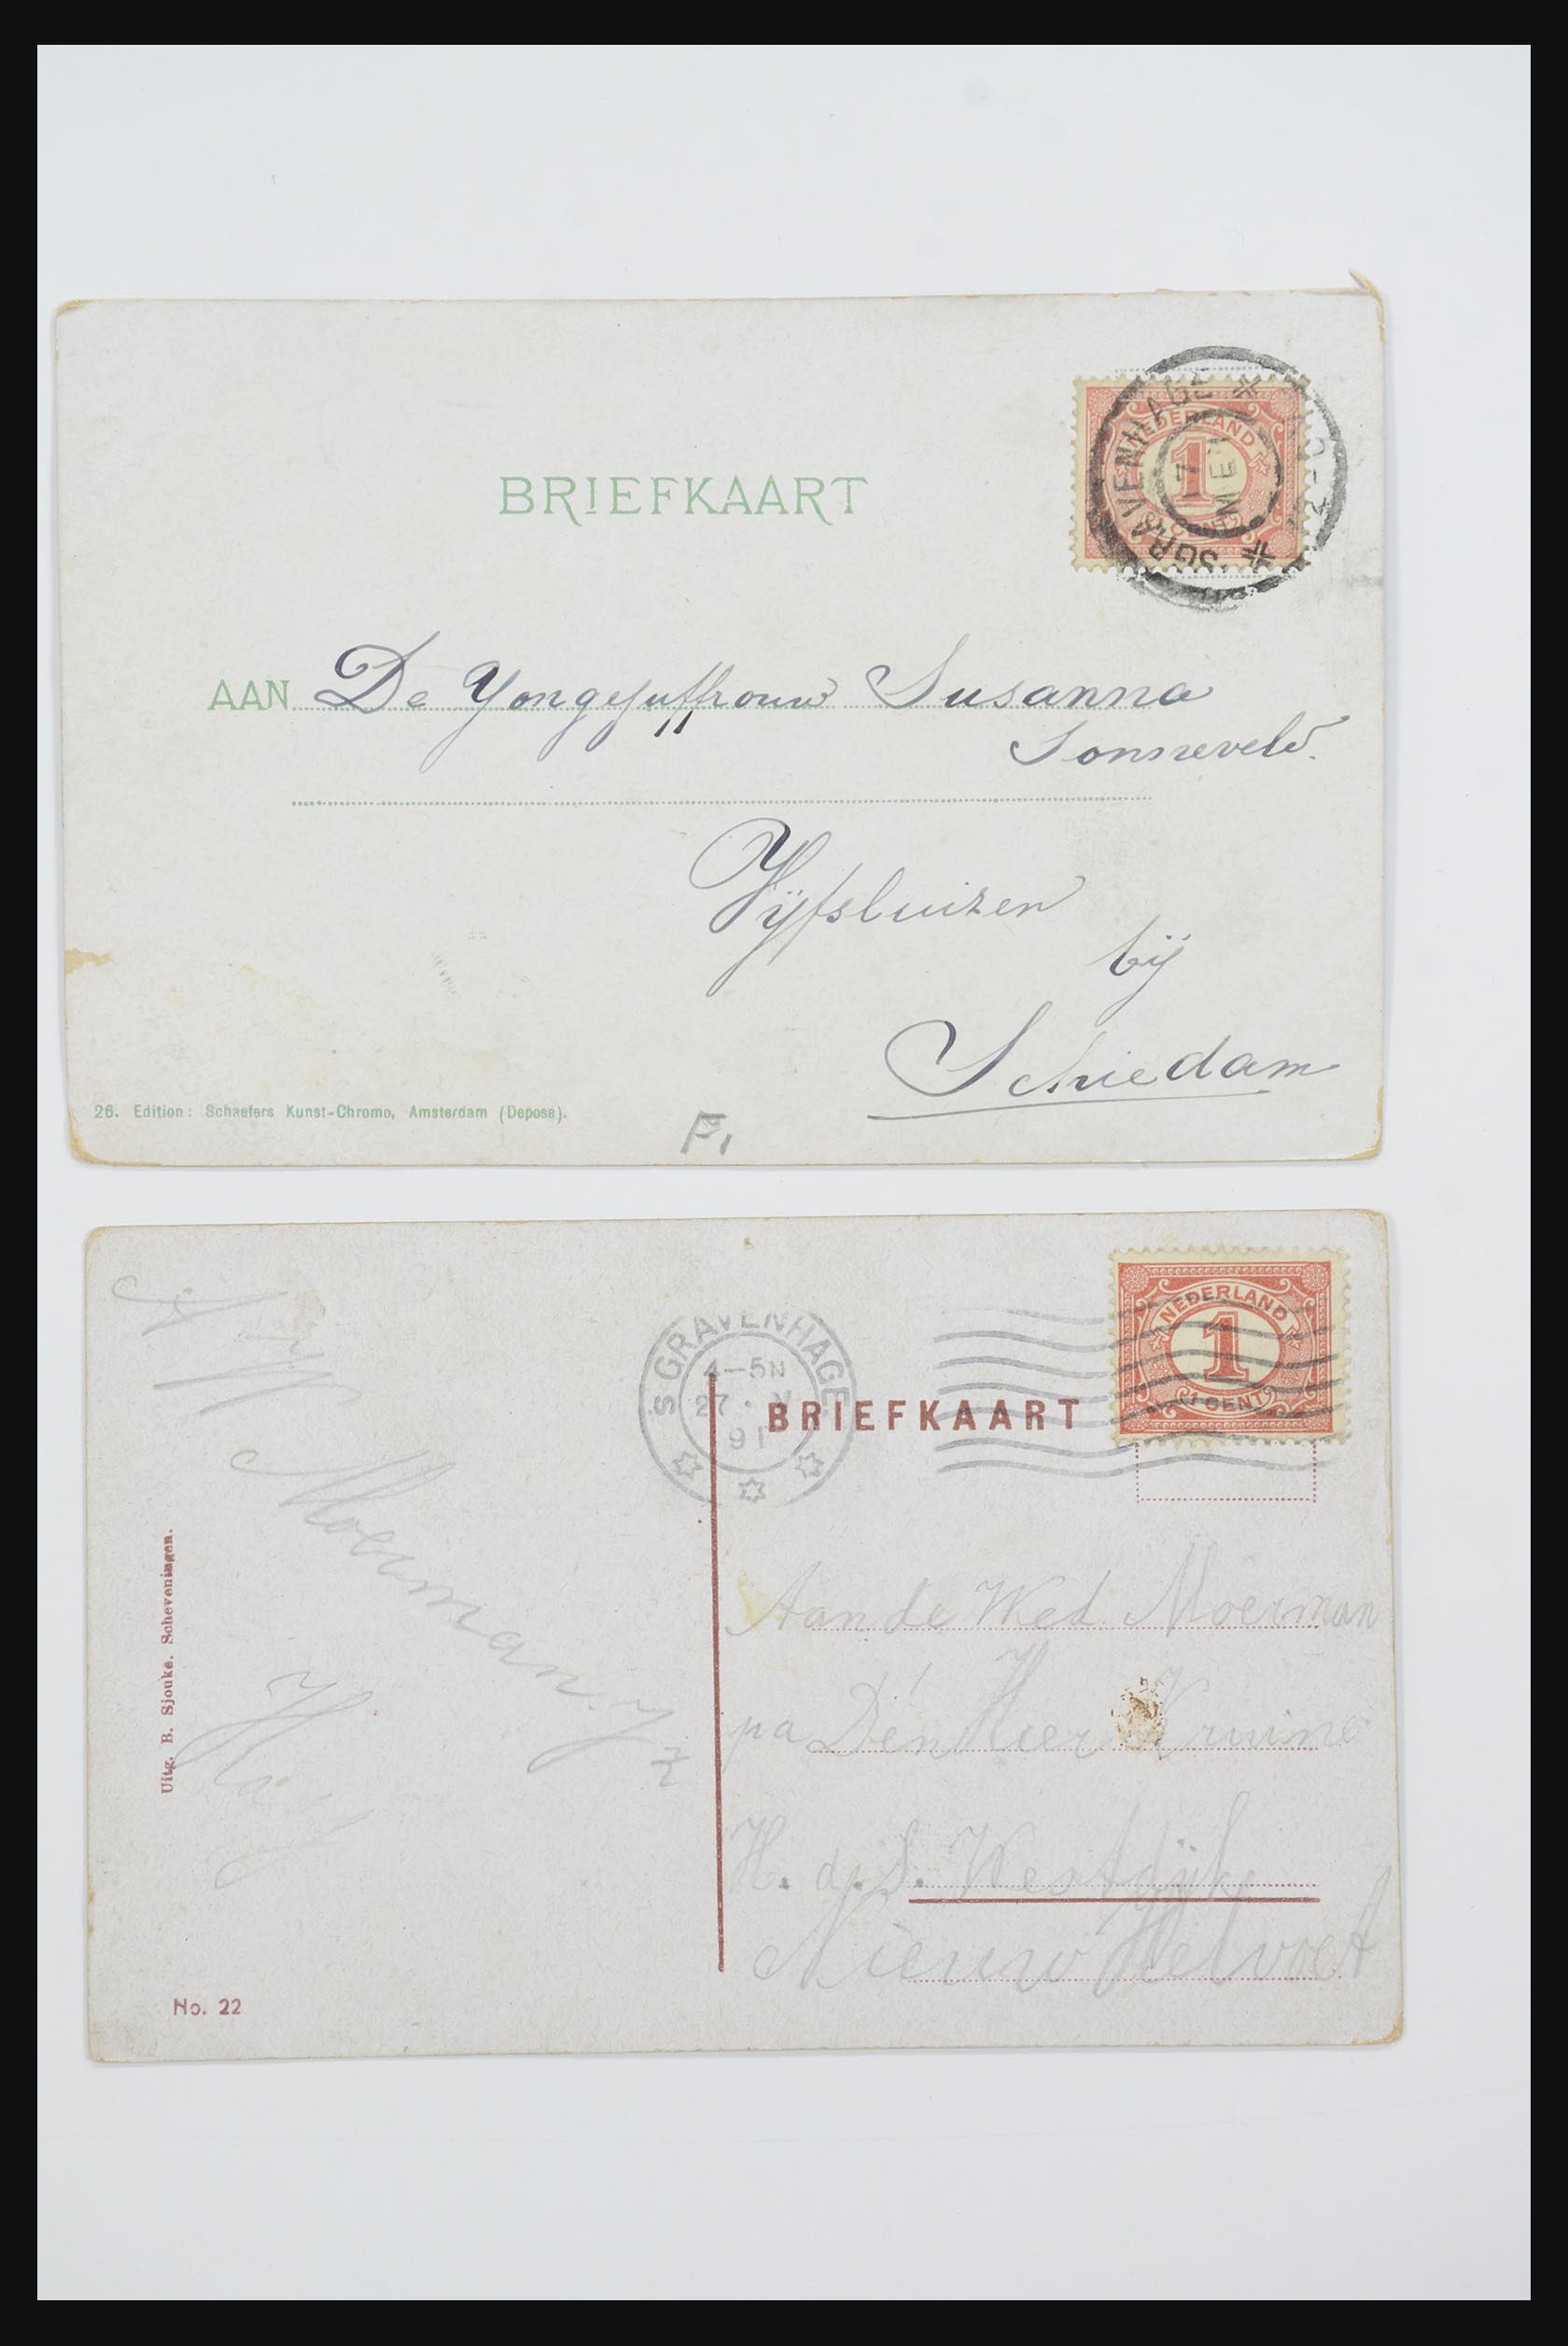 BRIEFKAART
NEDERLAND
1
CENT
'SGRAVENHAGE
7
MEI
AAN De Yongejuffrouw Susanna
Sonneveld.
Vijfsluizen
bij
Schiedam
26. Edition: Schaefers Kunst-Chromo, Amsterdam (Deposé).
F1
'S GRAVENHAGE
4-5N
27 · V
91
BRIEFKAART
NEDERLAND
1
1 CENT
Moerman. Jz
Uitg. B. Sjouke. Scheveningen.
Aan de Wed. Moerman
pa Den Heer Kruine
H. d. S. Westdijk
Nieuw Helvoet
No. 22